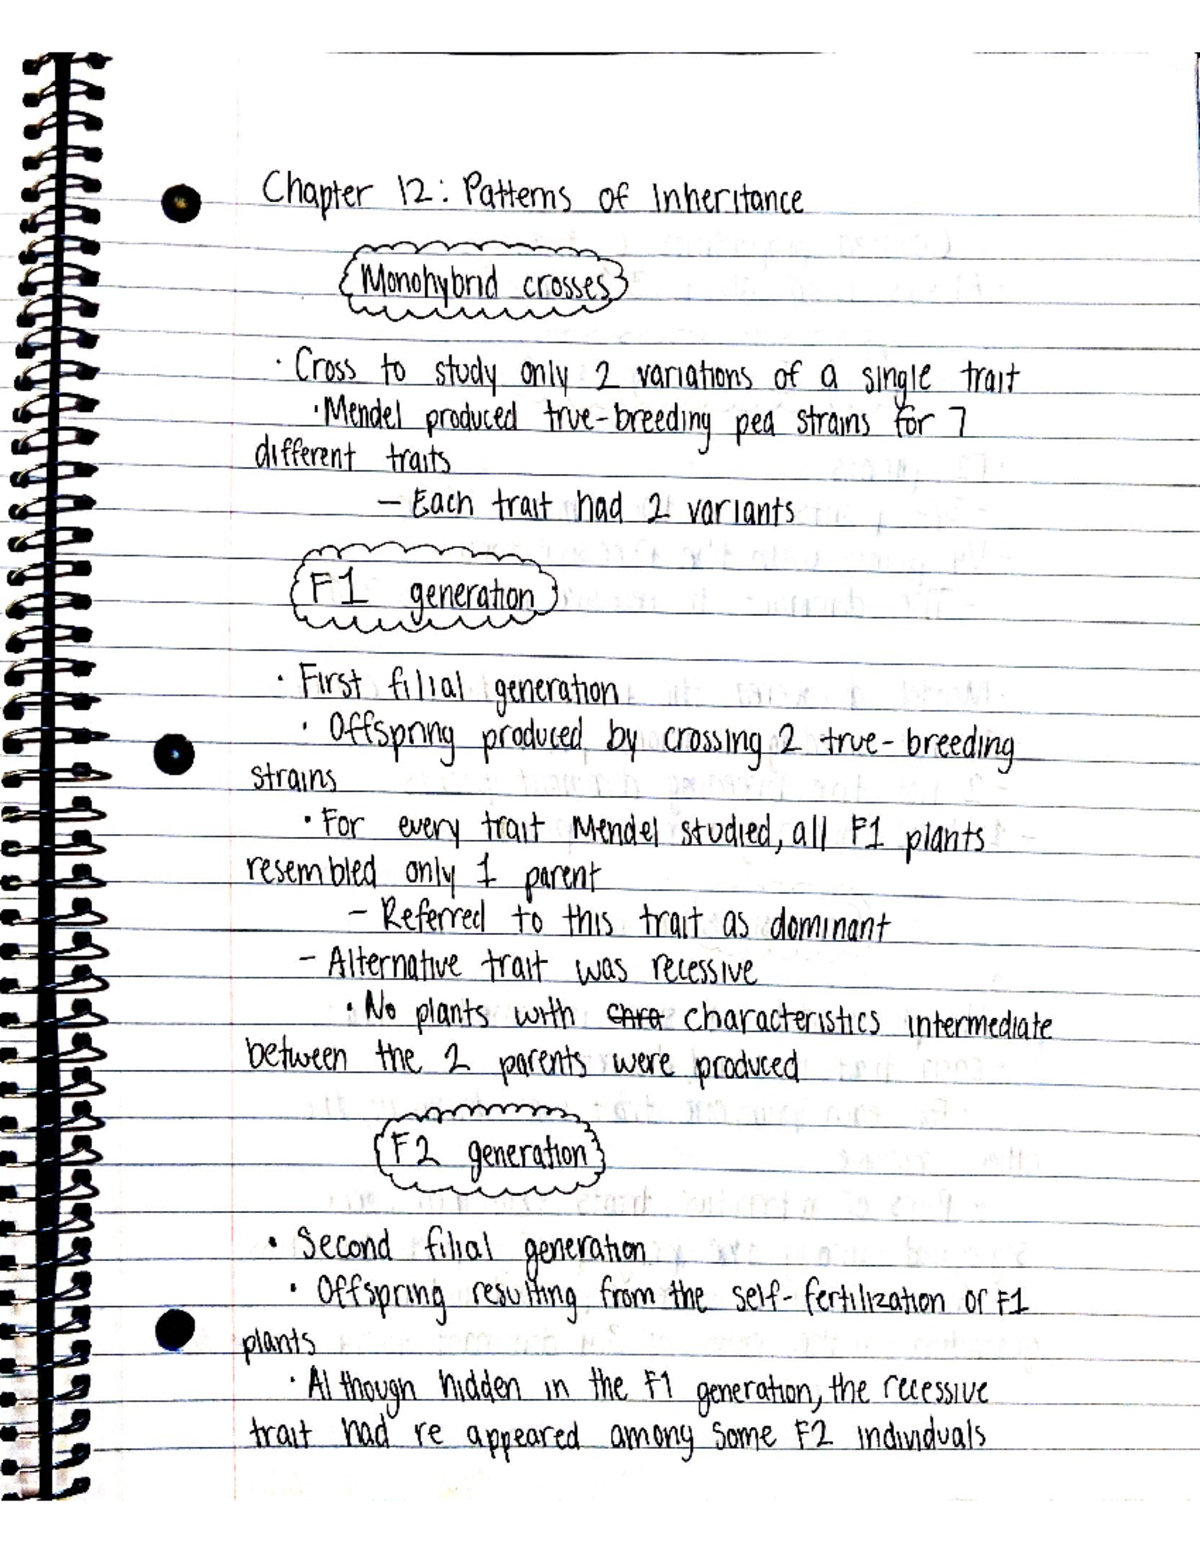 Chapter 12: Patterns of Inheritance
Monohybrid crosses
· Cross to study only 2 variations of a single trait
· Mendel produced true-breeding pea strains for 7
different traits
- Each trait had 2 variants
F1 generation
· First filial generation
· Offspring produced by crossing 2 true-breeding
strains
· For every trait Mendel studied, all F1 plants
resembled only 1 parent
- Referred to this trait as dominant
- Alternative trait was recessive
· No plants with chra characteristics intermediate
between the 2 parents were produced
F2 generation
· Second filial generation
· Offspring resulting from the self-fertilization of F1
plants
· Although hidden in the F1 generation, the recessive
trait had re appeared among some F2 individuals